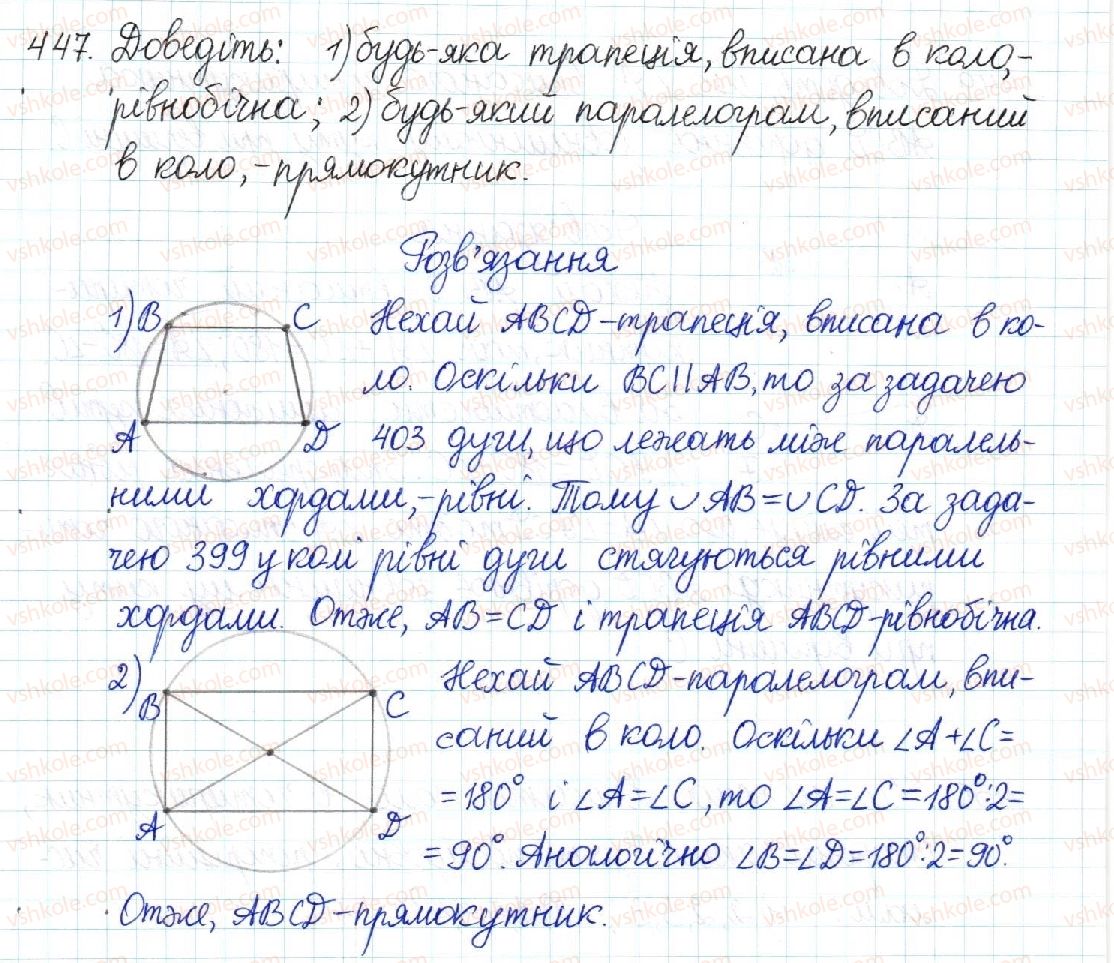 447. Доведіть: 1) будь-яка трапеція, вписана в коло, -
рівнобічна; 2) будь-який паралелограм, вписаний
в коло, - прямокутник.
Розв'язання
1) B C Нехай ABCD - трапеція, вписана в ко-
ло. Оскільки BC||AB, то за задачею
A D 403 дуги, що лежать між паралель-
ними хордами, - рівні. Тому ∪ AB = ∪ CD. За зада-
чею 399 у колі рівні дуги стягуються рівними
хордами. Отже, AB = CD і трапеція ABCD - рівнобічна.
2) B C Нехай ABCD - паралелограм, впи-
саний в коло. Оскільки ∠A + ∠C =
= 180° і ∠A = ∠C, то ∠A = ∠C = 180° : 2 =
A D = 90°. Аналогічно ∠B = ∠D = 180° : 2 = 90°.
Отже, ABCD - прямокутник.